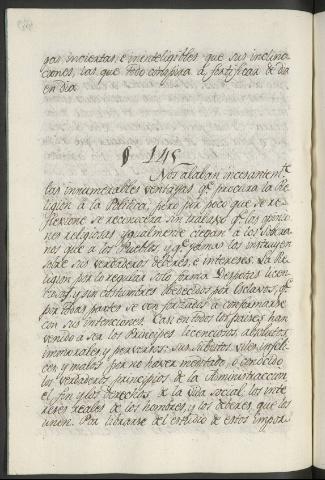 gas inciertas, e ininteligibles que sus inclina-
ciones, las que todo conspira a fortificar de dia
en dia.
§ 145
Nos alaban incesantem.te
las innumerables ventajas q.e procura la Re-
ligion à la Politica, pero por poco que se re-
flexione se reconocera sin trabajo q.e las opinio-
nes religiosas igualmente ciegan à los Sobera-
nos que a los Pueblos y q.e jamas los instruyen
sobre sus verdaderos deberes, e intereses. La Re-
ligion por lo regular solo forma Despotas licen-
ciosos, y sin costumbres obedecidos por Esclavos, q.e
por todas partes se ven forzados a conformarse
con sus intenciones. Casi en todos los paises han
venido a ser los Principes licenciosos, absolutos,
inmorales y perversos: sus Subditos viles, infeli-
ces y malos por no haver meditado, o conocido
los verdaderos principios de la Administraccion,
el fin y los derechos de la vida social, los inte-
reses reales de los hombres, y los deberes que los
unen. Por librarse del estudio de estos impor-